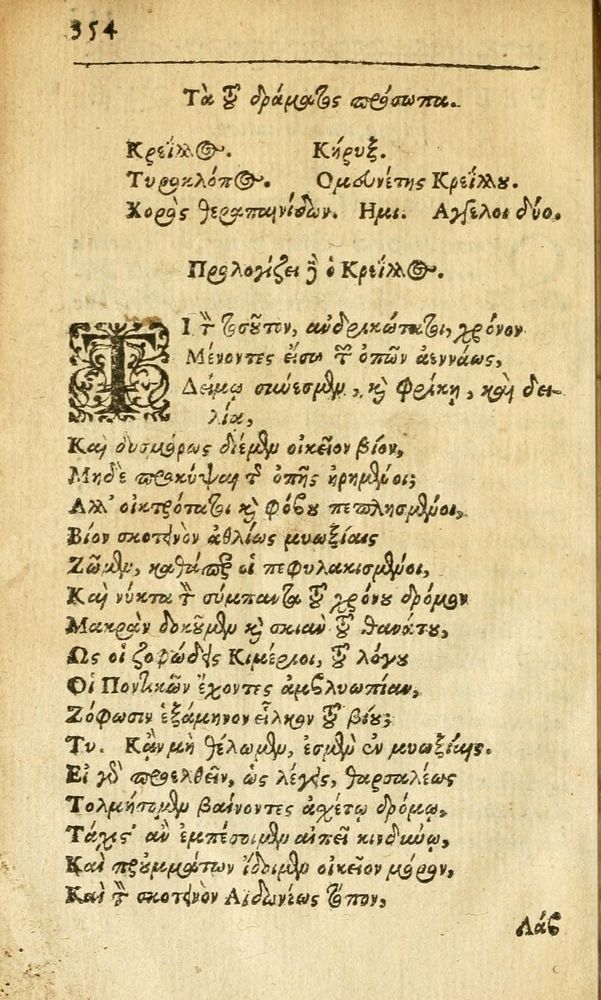 354
Τὰ τοῦ δράματος πρόσωπα.
Κρείλλος. Κήρυξ.
Τυροκλόπος. Ομευνέτης Κρείλλου.
Χορὸς θεραπαινίδων. Ημι. Αγγελοι δύο.
Προλογίζει δὲ ὁ Κρείλλος.
ΤΙ τὸν τοσοῦτον, ἀνδρικώτατοι, χρόνον
Μένοντες εἴσω τῶν ὀπῶν ἀεννάως,
Δείμῳ σύνεσμεν, καὶ φρίκῃ, καὶ δει-
λίᾳ,
Καὶ δυσμόρως διέμεν οἰκεῖον βίον,
Μηδὲ προκύψαι τῆς ὀπῆς ᾑρημένοι;
Αλλ' οἰκτρότατοι καὶ φόβου πεπλησμένοι,
Βίον σκοτεινὸν ἀθλίως μυωξίαις
Ζῶμεν, καθάπερ οἱ πεφυλακισμένοι,
Καὶ νύκτα τὸν σύμπαντα τοῦ χρόνου δρόμον
Μακρὰν δοκοῦμεν καὶ σκιὰν τοῦ θανάτου,
Ως οἱ ζοφώδεις Κιμέριοι, τοῦ λόγου
Οἱ Ποντικῶν ἔχοντες ἀμβλυωπίαν,
Ζόφωσιν ἑξάμηνον εἷλκον τοῦ βίου;
Τυ. Κἂν μὴ θέλωμεν, ἐσμὲν ἐν μυωξίαις.
Εἰ γὰρ προελθεῖν, ὡς λέγεις, θαρσαλέως
Τολμήσομεν βαίνοντες ἀχέτῳ δρόμῳ,
Τάχιστ' ἂν ἐμπέσοιμεν αἰπεῖ κινδύνῳ,
Καὶ πρὸ ὀμμάτων ἴδοιμεν οἰκεῖον μόρον,
Καὶ τὸν σκοτεινὸν Αἰδωνέως τόπον,
Λάβ